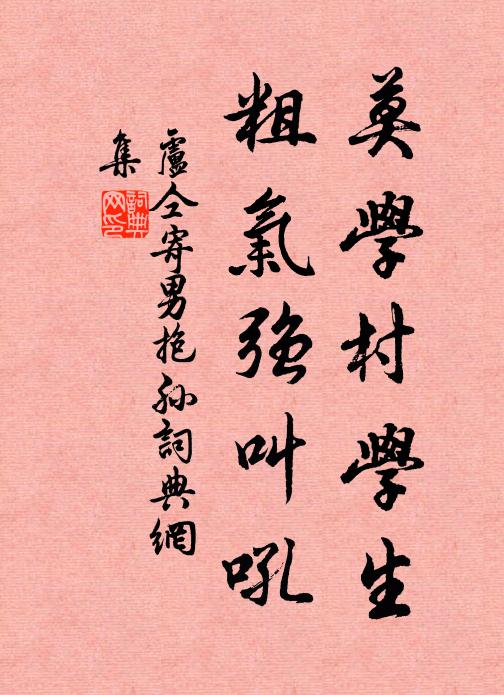 莫學村學生
粗氣強叫吼
盧仝寄男抱孫詞典網
集
詞典
网印